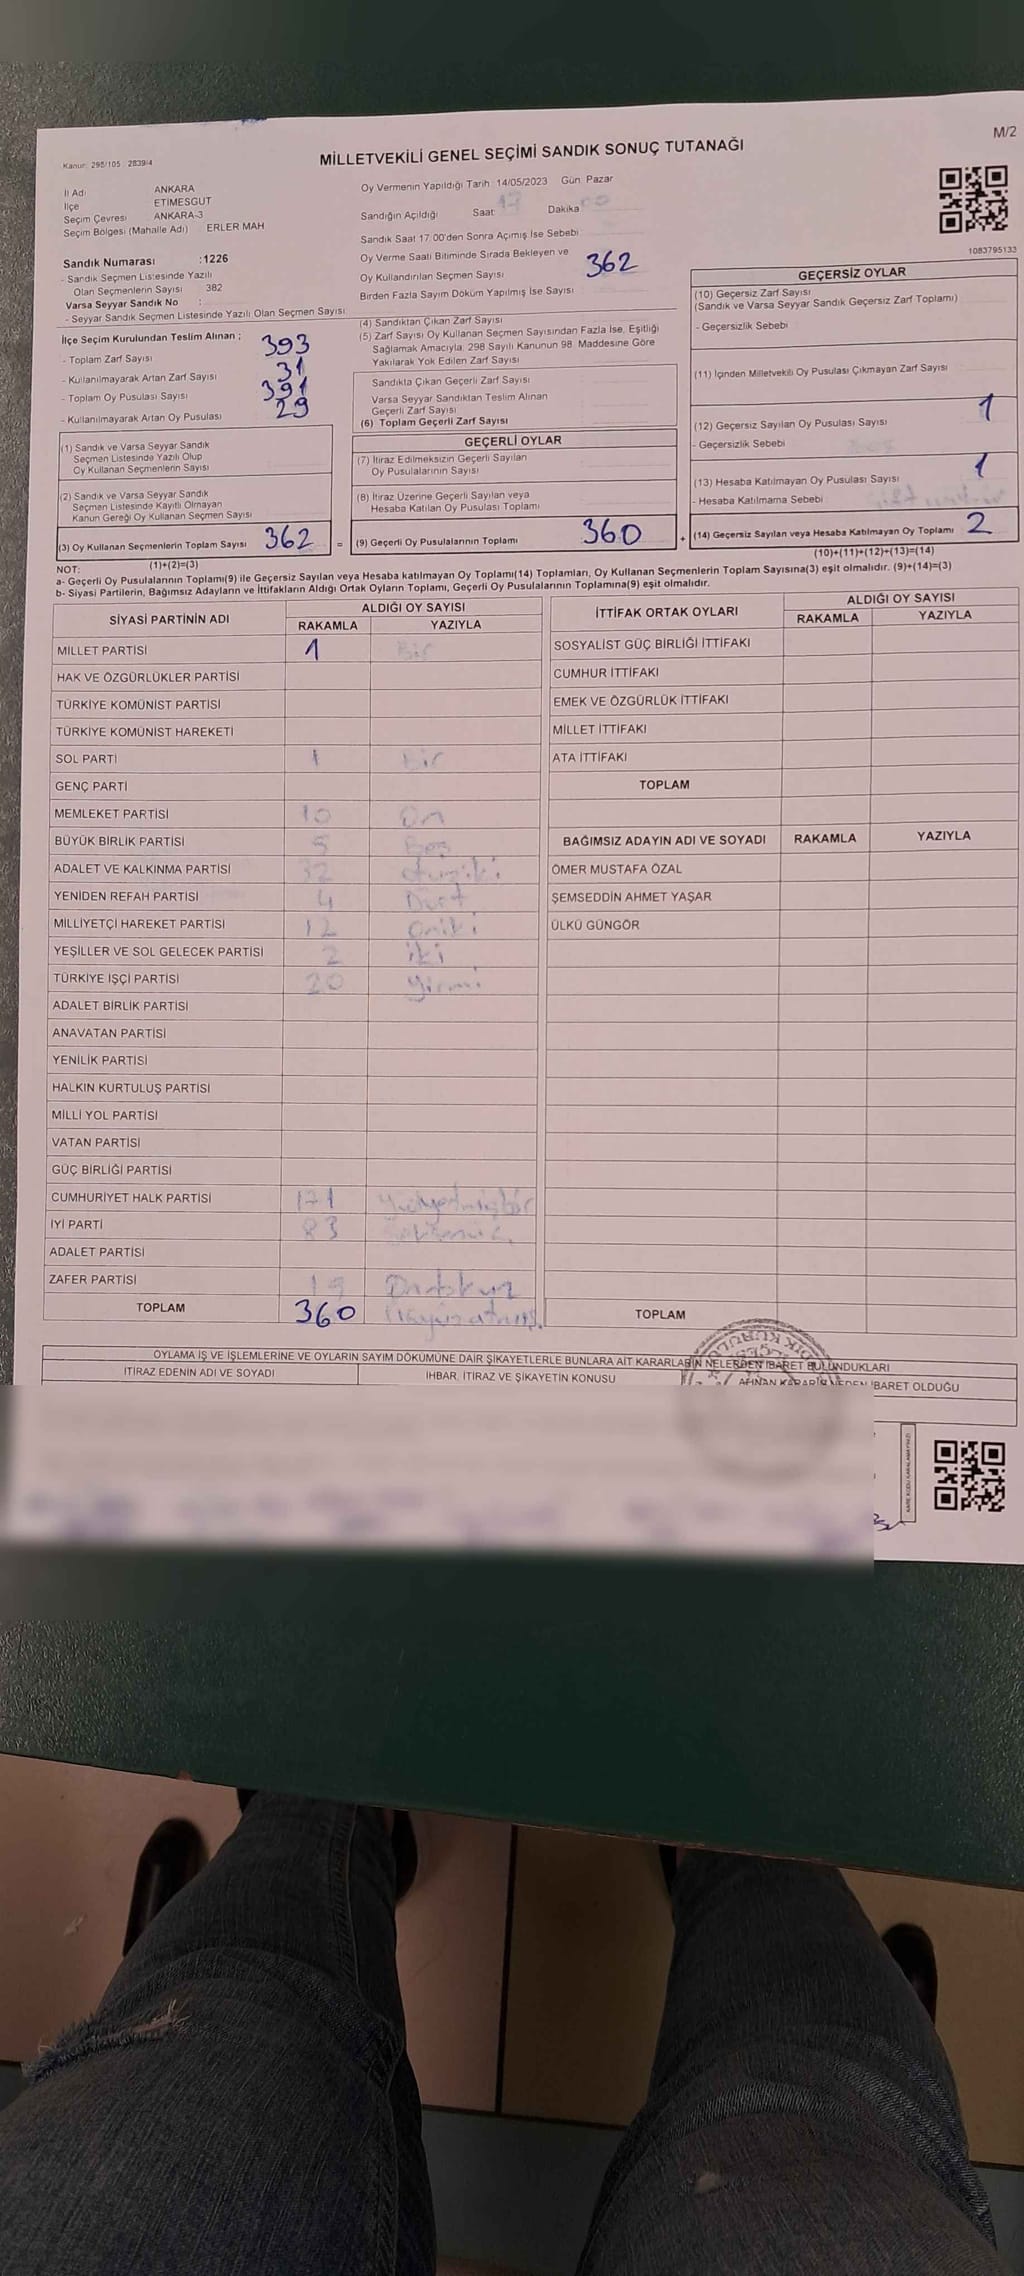 M/2
Kanun: 298/105 2839/4
MİLLETVEKİLİ GENEL SEÇİMİ SANDIK SONUÇ TUTANAĞI
İl Adı ANKARA
İlçe ETİMESGUT
Seçim Çevresi ANKARA-3
Seçim Bölgesi (Mahalle Adı) ERLER MAH
Oy Vermenin Yapıldığı Tarih 14/05/2023 Gün Pazar
Sandığın Açıldığı Saat 17 Dakika 00
Sandık Saat 17:00'den Sonra Açımış İse Sebebi
Oy Verme Saati Bitiminde Sırada Bekleyen ve
Oy Kullandırılan Seçmen Sayısı 362
Birden Fazla Sayım Döküm Yapılmış İse Sayısı
1083795133
Sandık Numarası :1226
- Sandık Seçmen Listesinde Yazılı
Olan Seçmenlerin Sayısı 382
Varsa Seyyar Sandık No :
- Seyyar Sandık Seçmen Listesinde Yazılı Olan Seçmen Sayısı
İlçe Seçim Kurulundan Teslim Alınan ;
- Toplam Zarf Sayısı 393
- Kullanılmayarak Artan Zarf Sayısı 31
- Toplam Oy Pusulası Sayısı 391
- Kullanılmayarak Artan Oy Pusulası 29
(1) Sandık ve Varsa Seyyar Sandık
Seçmen Listesinde Yazılı Olup
Oy Kullanan Seçmenlerin Sayısı
(2) Sandık ve Varsa Seyyar Sandık
Seçmen Listesinde Kayıtlı Olmayan
Kanun Gereği Oy Kullanan Seçmen Sayısı
(3) Oy Kullanan Seçmenlerin Toplam Sayısı 362 =
(1)+(2)=(3)
(4) Sandıktan Çıkan Zarf Sayısı
(5) Zarf Sayısı Oy Kullanan Seçmen Sayısından Fazla İse, Eşitliği
Sağlamak Amacıyla, 298 Sayılı Kanunun 98. Maddesine Göre
Yakılarak Yok Edilen Zarf Sayısı
Sandıkta Çıkan Geçerli Zarf Sayısı
Varsa Seyyar Sandıktan Teslim Alınan
Geçerli Zarf Sayısı
(6) Toplam Geçerli Zarf Sayısı
GEÇERLİ OYLAR
(7) İtiraz Edilmeksizin Geçerli Sayılan
Oy Pusulalarının Sayısı
(8) İtiraz Üzerine Geçerli Sayılan veya
Hesaba Katılan Oy Pusulası Toplamı
(9) Geçerli Oy Pusulalarının Toplamı 360 +
GEÇERSİZ OYLAR
(10) Geçersiz Zarf Sayısı
(Sandık ve Varsa Seyyar Sandık Geçersiz Zarf Toplamı)
- Geçersizlik Sebebi
(11) İçinden Milletvekili Oy Pusulası Çıkmayan Zarf Sayısı
(12) Geçersiz Sayılan Oy Pusulası Sayısı 1
- Geçersizlik Sebebi
(13) Hesaba Katılmayan Oy Pusulası Sayısı 1
- Hesaba Katılmama Sebebi
(14) Geçersiz Sayılan veya Hesaba Katılmayan Oy Toplamı 2
(10)+(11)+(12)+(13)=(14)
NOT:
a- Geçerli Oy Pusulalarının Toplamı(9) ile Geçersiz Sayılan veya Hesaba katılmayan Oy Toplamı(14) Toplamları, Oy Kullanan Seçmenlerin Toplam Sayısına(3) eşit olmalıdır. (9)+(14)=(3)
b- Siyasi Partilerin, Bağımsız Adayların ve İttifakların Aldığı Ortak Oyların Toplamı, Geçerli Oy Pusulalarının Toplamına(9) eşit olmalıdır.
SİYASİ PARTİNİN ADI ALDIĞI OY SAYISI
RAKAMLA YAZIYLA
MİLLET PARTİSİ 1 Bir
HAK VE ÖZGÜRLÜKLER PARTİSİ
TÜRKİYE KOMÜNİST PARTİSİ
TÜRKİYE KOMÜNİST HAREKETİ
SOL PARTİ 1 Bir
GENÇ PARTİ
MEMLEKET PARTİSİ 10 On
BÜYÜK BİRLİK PARTİSİ 5 Beş
ADALET VE KALKINMA PARTİSİ 32 otuziki
YENİDEN REFAH PARTİSİ 4 Dört
MİLLİYETÇİ HAREKET PARTİSİ 12 Oniki
YEŞİLLER VE SOL GELECEK PARTİSİ 2 iki
TÜRKİYE İŞÇİ PARTİSİ 20 yirmi
ADALET BİRLİK PARTİSİ
ANAVATAN PARTİSİ
YENİLİK PARTİSİ
HALKIN KURTULUŞ PARTİSİ
MİLLİ YOL PARTİSİ
VATAN PARTİSİ
GÜÇ BİRLİĞİ PARTİSİ
CUMHURİYET HALK PARTİSİ 171 Yüzyetmişbir
İYİ PARTİ 83 seksenüç
ADALET PARTİSİ
ZAFER PARTİSİ 19 Ondokuz
TOPLAM 360 Üçyüzaltmış
İTTİFAK ORTAK OYLARI ALDIĞI OY SAYISI
RAKAMLA YAZIYLA
SOSYALİST GÜÇ BİRLİĞİ İTTİFAKI
CUMHUR İTTİFAKI
EMEK VE ÖZGÜRLÜK İTTİFAKI
MİLLET İTTİFAKI
ATA İTTİFAKI
TOPLAM
BAĞIMSIZ ADAYIN ADI VE SOYADI RAKAMLA YAZIYLA
ÖMER MUSTAFA ÖZAL
ŞEMSEDDİN AHMET YAŞAR
ÜLKÜ GÜNGÖR
TOPLAM
OYLAMA İŞ VE İŞLEMLERİNE VE OYLARIN SAYIM DÖKÜMÜNE DAİR ŞİKAYETLERLE BUNLARA AİT KARARLARIN NELERDEN İBARET BULUNDUKLARI
İTİRAZ EDENİN ADI VE SOYADI İHBAR, İTİRAZ VE ŞİKAYETİN KONUSU ALINAN KARARIN NEDEN İBARET OLDUĞU
KARE KODU KARALAMAYINIZ!